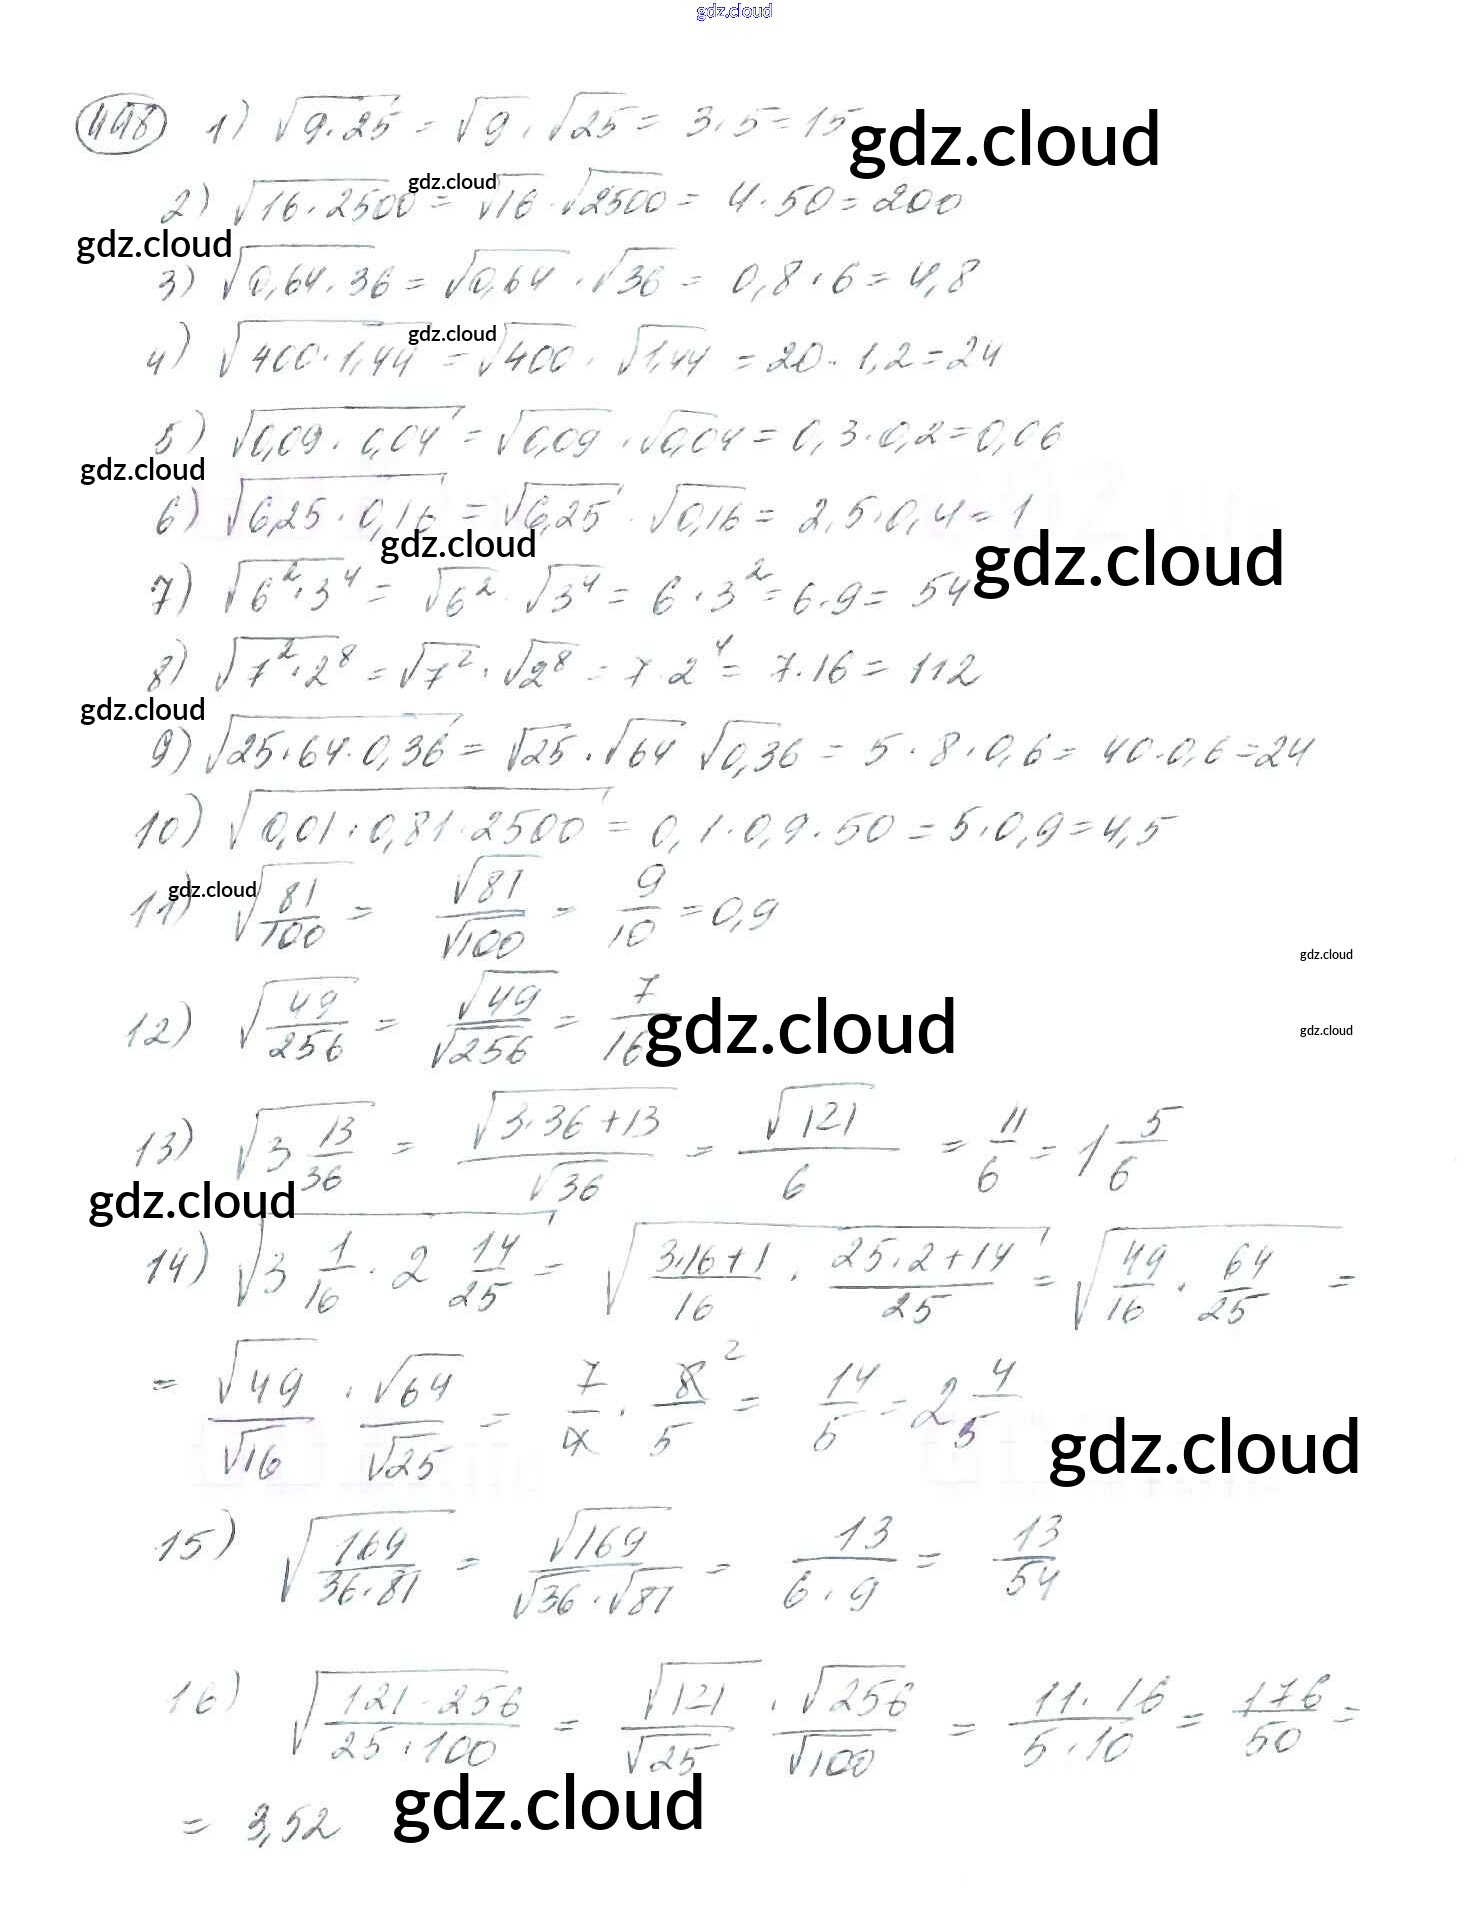 gdz.cloud
448 1) √9·25 = √9 · √25 = 3·5=15 gdz.cloud
2) √16·2500 = √16 · √2500 = 4·50=200 gdz.cloud
gdz.cloud
3) √0,64·36 = √0,64 · √36 = 0,8·6=4,8
4) √400·1,44 = √400 · √1,44 = 20·1,2=24 gdz.cloud
5) √0,09·0,04 = √0,09 · √0,04 = 0,3·0,2=0,06
gdz.cloud
6) √6,25·0,16 = √6,25 · √0,16 = 2,5·0,4=1
gdz.cloud gdz.cloud
7) √6²·3⁴ = √6² · √3⁴ = 6·3²=6·9= 54
8) √7²·2⁸ = √7² · √2⁸ = 7·2⁴= 7·16= 112
gdz.cloud
9) √25·64·0,36 = √25 · √64 √0,36 = 5·8·0,6= 40·0,6=24
10) √0,01·0,81·2500 = 0,1·0,9·50 = 5·0,9=4,5
gdz.cloud
11) √81/100 = √81/√100 = 9/10 =0,9
gdz.cloud
12) √49/256 = √49/√256 = 7/16 gdz.cloud
gdz.cloud
13) √3 13/36 = √3·36+13/√36 = √121/6 = 11/6 = 1 5/6
gdz.cloud
14) √3 1/16 · 2 14/25 = √3·16+1/16 · 25·2+14/25 = √49/16 · 64/25 =
= √49/√16 · √64/√25 = 7/4 · 8²/5 = 14/5 = 2 4/5
gdz.cloud
15) √169/36·81 = √169/√36·√81 = 13/6·9 = 13/54
16) √121·256/25·100 = √121/√25 · √256/√100 = 11·16/5·10 = 176/50 =
gdz.cloud
= 3,52